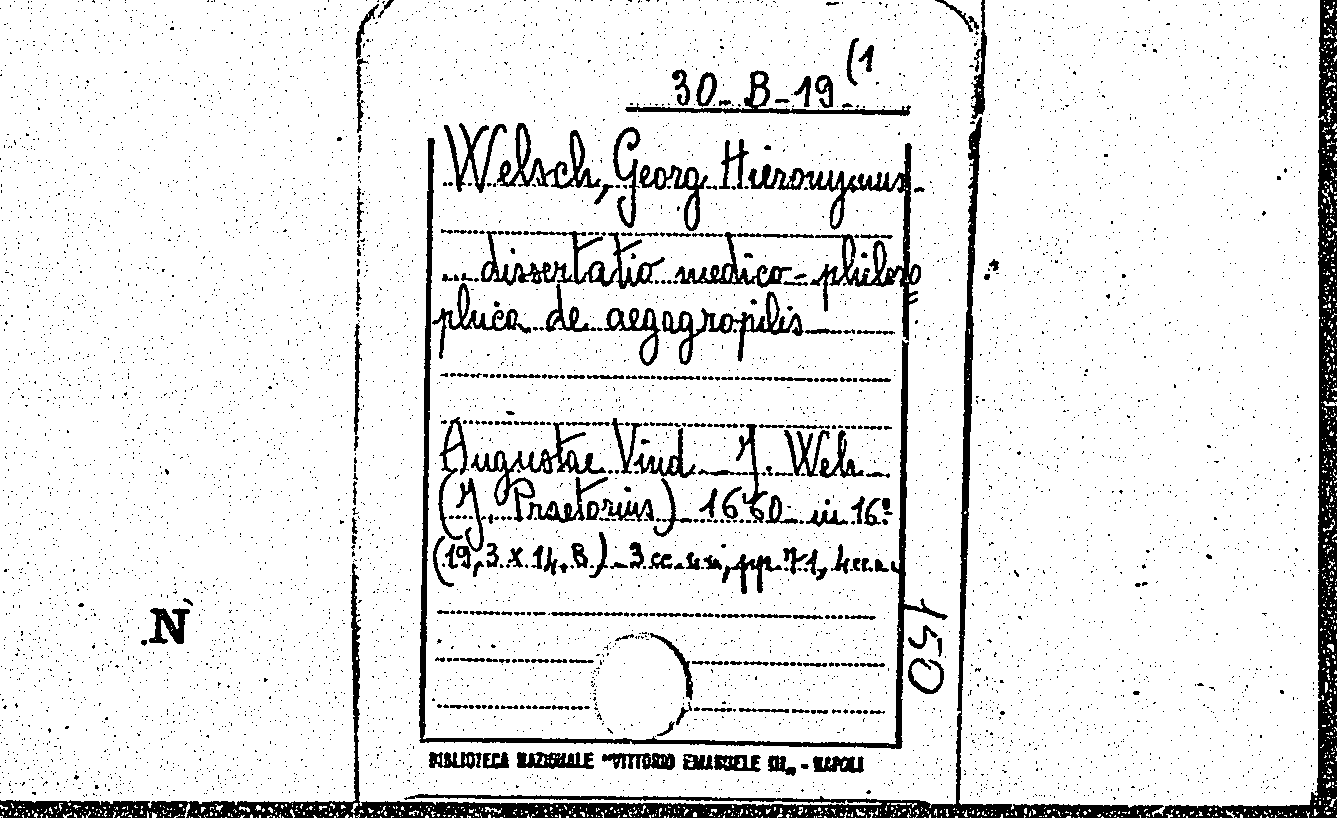 30-B-19(1
Welsch, Georg Hieronymus-
... dissertatio medico-philoso=
phica de aegagropilis
Augustae Vind. J. Weh
(J. Praetorius) 1660 in 16º
(19,3 x 14,8) 3 cc. pp. 71,
150
N
BIBLIOTECA NAZIONALE "VITTORIO EMANUELE III" - NAPOLI